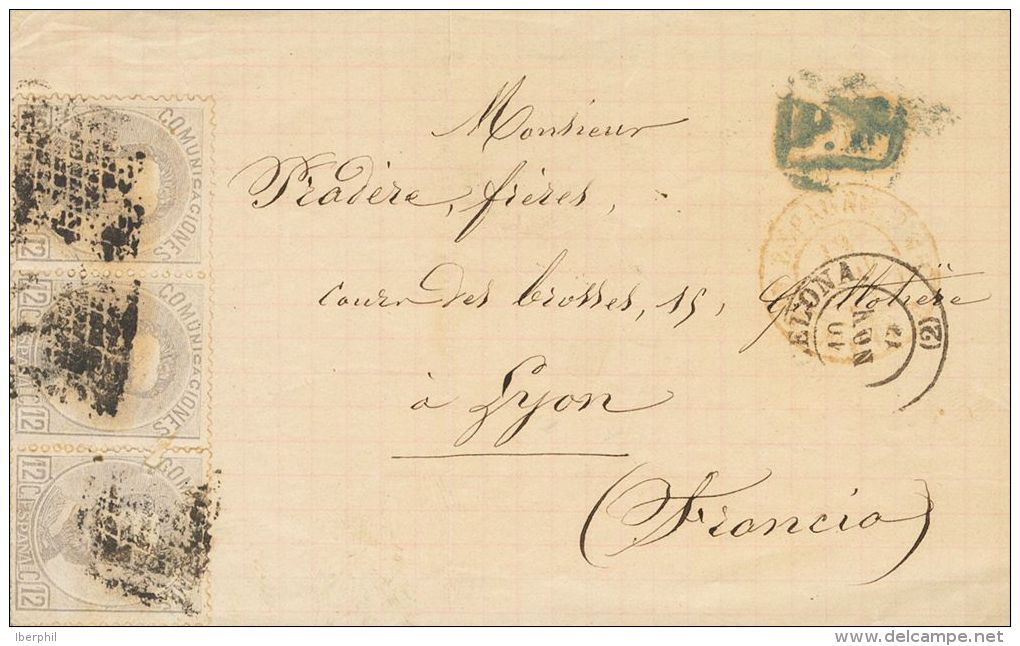 Monsieur
Pradère, frères,
cours des brosses, 15, Gd Molière
à Lyon
(Francia)
P.D.
ESPAGNE
ELONA
10
NOV
(2)
COMUNICACIONES
12
12 CS ESPAÑA C 12
COMUNICACIONES
12 CS ESPAÑA C 12
COM
Iberphil
delcampe.net